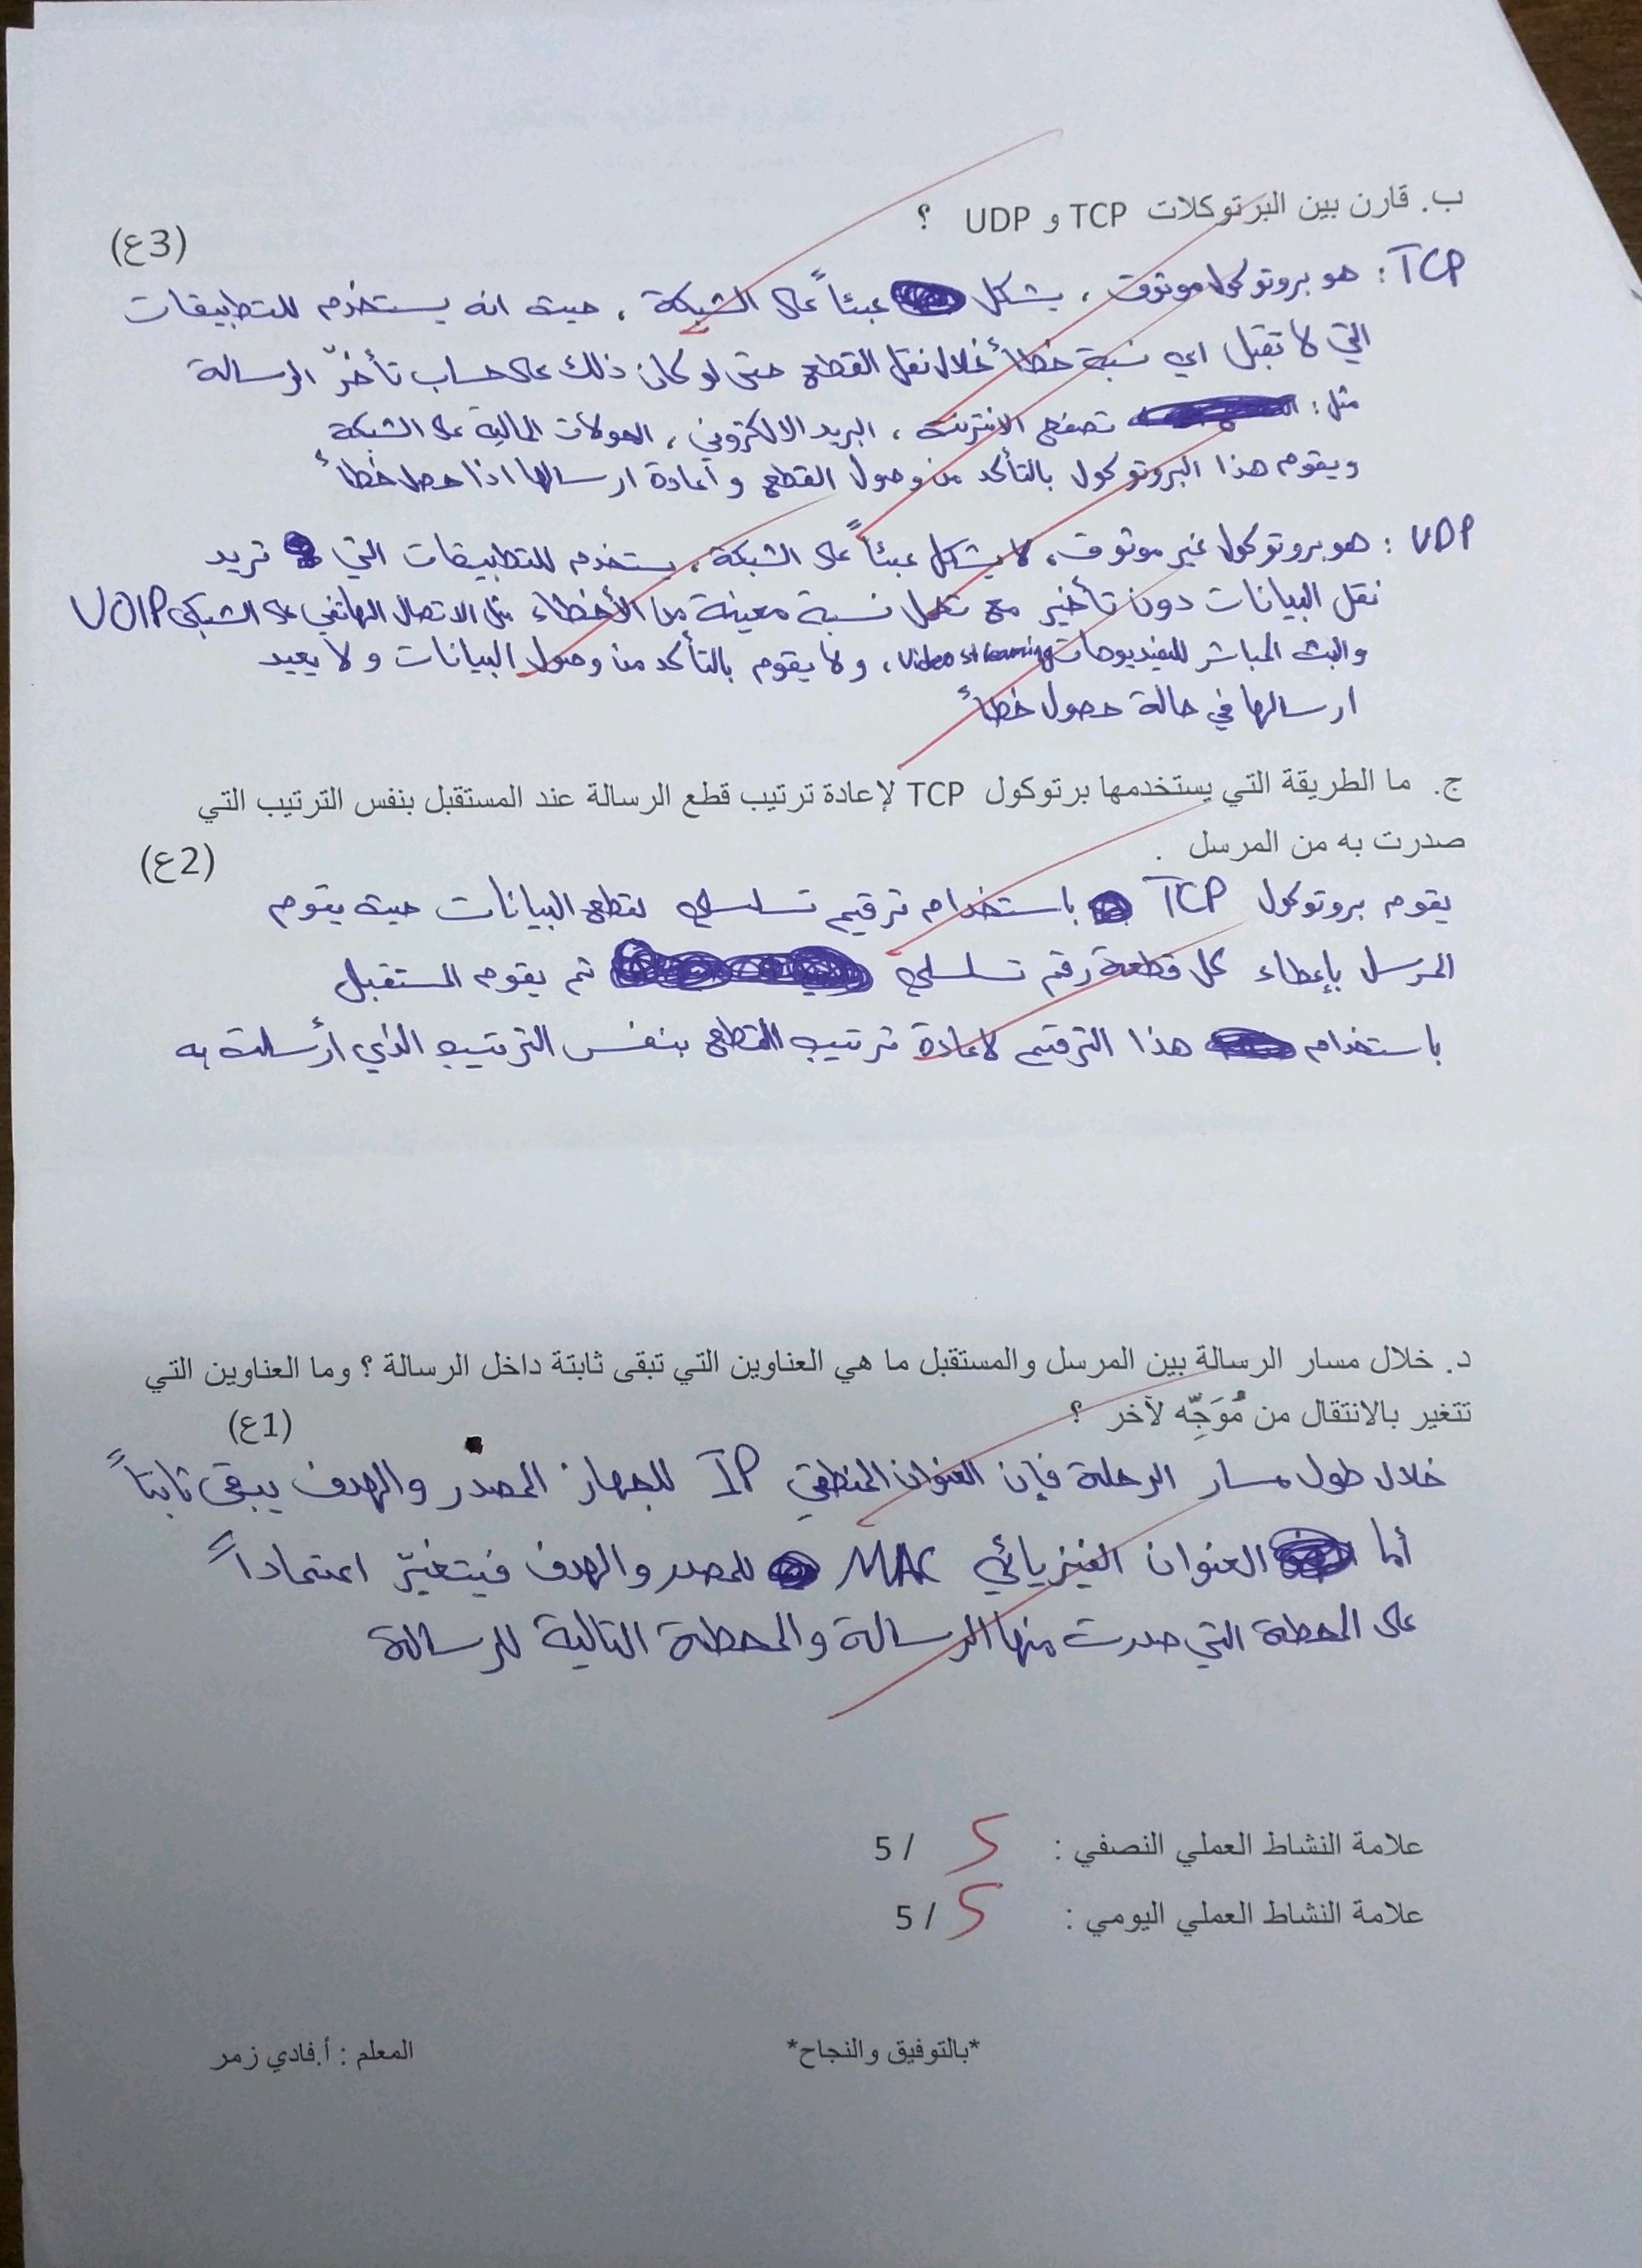 ب. قارن بين البرتوكلات TCP و UDP ؟
(3ع)
TCP : هو بروتوكول موثوق ، يشكل عبئاً على الشبكة ، حيث انه يستخدم للتطبيقات
التي لا تقبل اي نسبة خطأ خلال نقل القطع حتى لو كان ذلك على حساب تأخرّ الرسالة
مثل : تصفح الانترنت ، البريد الالكتروني ، الحولات المالية على الشبكة
ويقوم هذا البروتوكول بالتأكد من وصول القطع و اعادة ارسالها اذا حصل خطأ
UDP : هو بروتوكول غير موثوق ، لا يشكل عبئاً على الشبكة ، يستخدم للتطبيقات التي تريد
نقل البيانات دون تأخير مع تحمل نسبة معينة من الأخطاء مثل الاتصال الهاتفي على الشبكي VOIP
والبث المباشر للفيديوهات video streaming ، ولا يقوم بالتأكد من وصول البيانات و لا يعيد
ارسالها في حالة حصول خطأ
ج. ما الطريقة التي يستخدمها برتوكول TCP لإعادة ترتيب قطع الرسالة عند المستقبل بنفس الترتيب التي
صدرت به من المرسل .
(2ع)
يقوم بروتوكول TCP باستخدام ترقيم تسلسلي لقطع البيانات حيث يقوم
المرسل بإعطاء كل قطعة رقم تسلسلي ثم يقوم المستقبل
باستخدام هذا الترقيم لاعادة ترتيب القطع بنفس الترتيب الذي أرسلت به
د. خلال مسار الرسالة بين المرسل والمستقبل ما هي العناوين التي تبقى ثابتة داخل الرسالة ؟ وما العناوين التي
تتغير بالانتقال من مُوَجِّه لآخر ؟
(1ع)
خلال طول مسار الرحلة فإن العنوان المنطقي IP للجهاز المصدر والهدف يبقى ثابتاً
أما العنوان الفيزيائي MAC للمصدر والهدف فيتغيّر اعتماداً
على المحطة التي صدرت منها الرسالة والمحطة التالية للرسالة
علامة النشاط العملي النصفي : 5 / 5
علامة النشاط العملي اليومي : 5 / 5
*بالتوفيق والنجاح*
المعلم : أ.فادي زمر